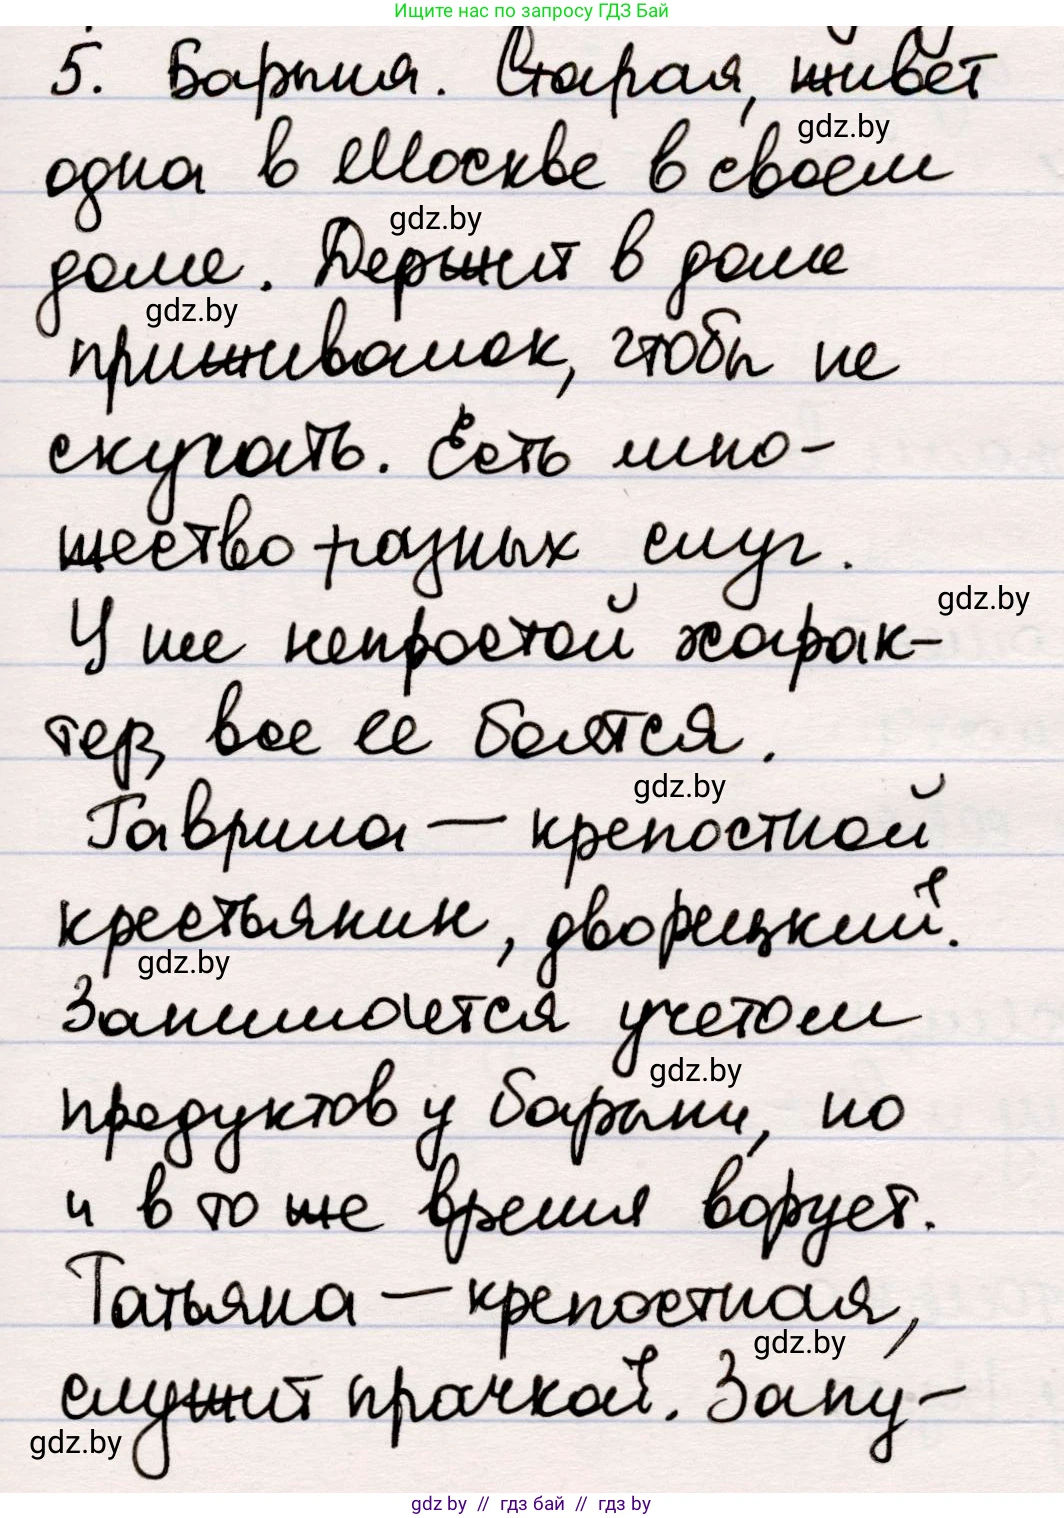 Ищите нас по запросу ГДЗ Бай
5. Барыня. Старая, живёт
gdz.by
одна в Москве в своем
gdz.by
доме. Держит в доме
gdz.by
приживалок, чтобы не
скучать. Есть мно-
жество разных слуг.
gdz.by
У нее непростой харак-
тер, все ее боятся.
gdz.by
Гаврила — крепостной
крестьянин, дворецкий.
gdz.by
Занимается учетом
gdz.by
продуктов у барыни, но
и в то же время ворует.
Татьяна — крепостная,
gdz.by
служит прачкой. Запу-
gdz.by
gdz.by // гдз бай // гдз by